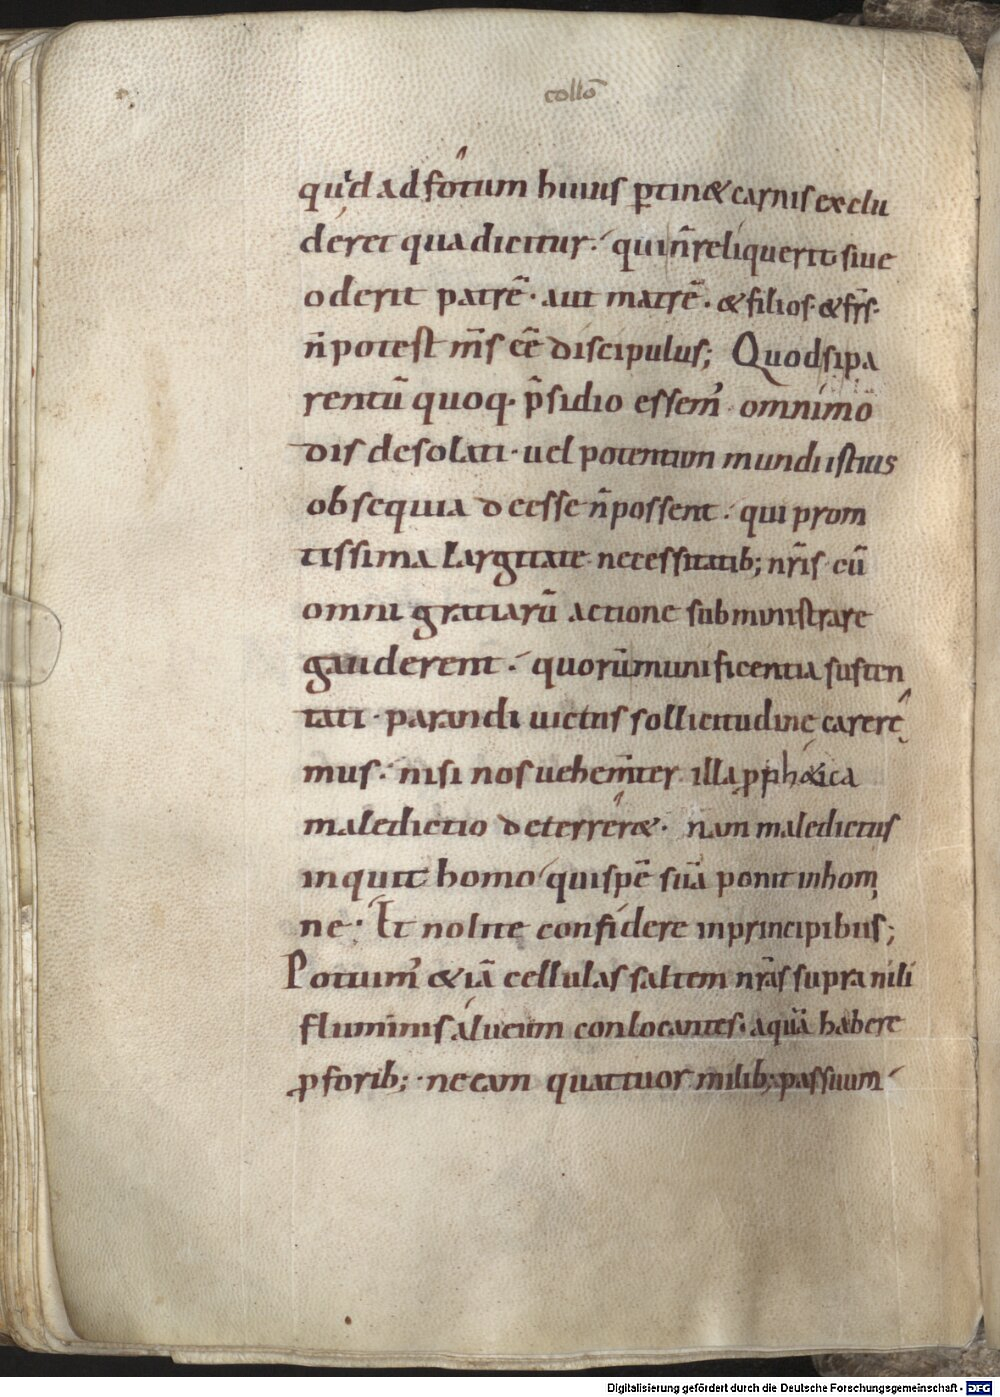 collō
quid ad fotum huius ꝑtin& carnis exclu
deret qua dicitur. qui n̄ reliquerit siue
oderit patrē. aut matrē. & filios. & frs̄.
n̄ potest ms̄ eē discipulus; Quod si pa
rentū quoq. p̄sidio essem' omnimo
dis desolati. uel potentum mundi istius
obsequia deesse n̄ possent. qui prom
tissima largitate necessitatib; nr̄is cū
omni gratiarū actione subministrare
gauderent. quorū munificentia susten
tati. parandi uictus sollicitudine carere
mus. nisi nos uehem̄ter illa ꝓph&ica
maledictio deterrer&. nam maledictus
inquit homo qui spē suā ponit in homi
ne. Et nolite confidere in principibus;
Potuim' &iā cellulas saltem nr̄as supra nili
fluminis alueum conlocantes. aquā habere
p forib; ne eam quattuor milib; passuum